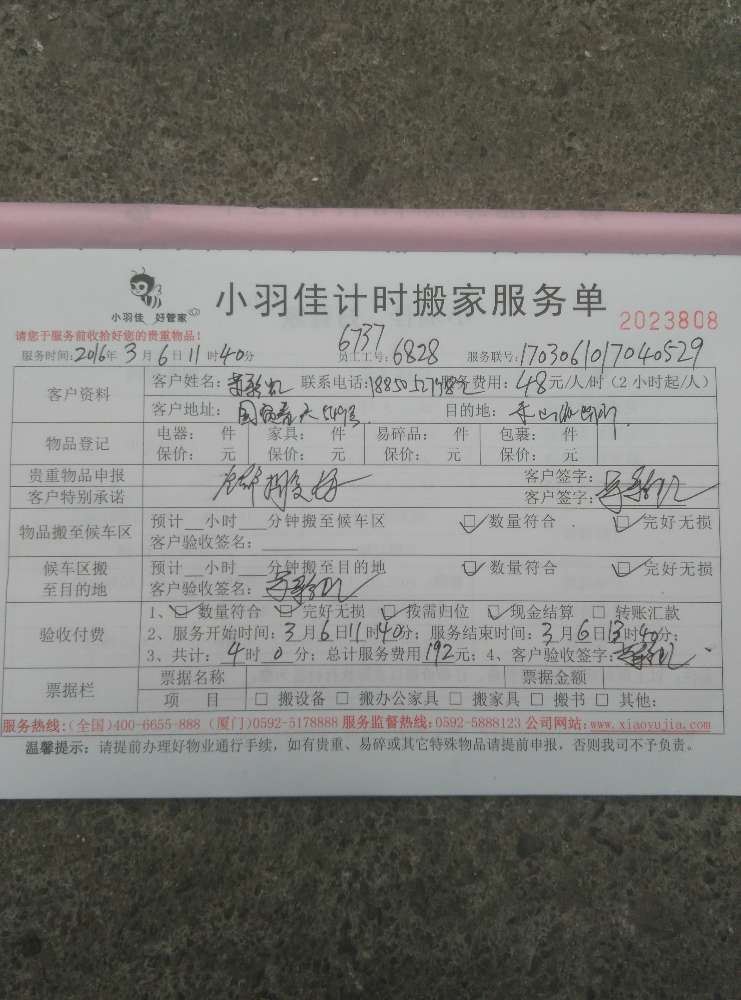 小羽佳 好管家
小羽佳计时搬家服务单
2023808
请您于服务前收拾好您的贵重物品！
服务时间：2016年3月6日11时40分 员工工号：6737 6828 服务联号：1703061017040529
客户资料
客户姓名： 联系电话： 服务费用：48元/人/时（2小时起/人）
客户地址： 目的地：
物品登记
电器： 件 家具： 件 易碎品： 件 包裹： 件
保价： 元 保价： 元 保价： 元 保价： 元
贵重物品申报 客户签字：
客户特别承诺 客户签字：
物品搬至候车区
预计__小时___分钟搬至候车区 ☑数量符合 ☑完好无损
客户验收签名：
候车区搬至目的地
预计__小时___分钟搬至目的地 ☑数量符合 ☑完好无损
客户验收签名：
验收付费
1、☑数量符合 ☑完好无损 ☑按需归位 ☑现金结算 □转账汇款
2、服务开始时间：3月6日11时40分；服务结束时间：3月6日13时40分；
3、共计：4时0分；总计服务费用192元；4、客户验收签字：
票据栏
票据名称 票据金额
项目 □搬设备 □搬办公家具 □搬家具 □搬书 □其他：
服务热线：（全国）400-6655-888（厦门）0592-5178888 服务监督热线：0592-5888123 公司网站：www.xiaoyujia.com
温馨提示：请提前办理好物业通行手续，如有贵重、易碎或其它特殊物品请提前申报，否则我司不予负责。